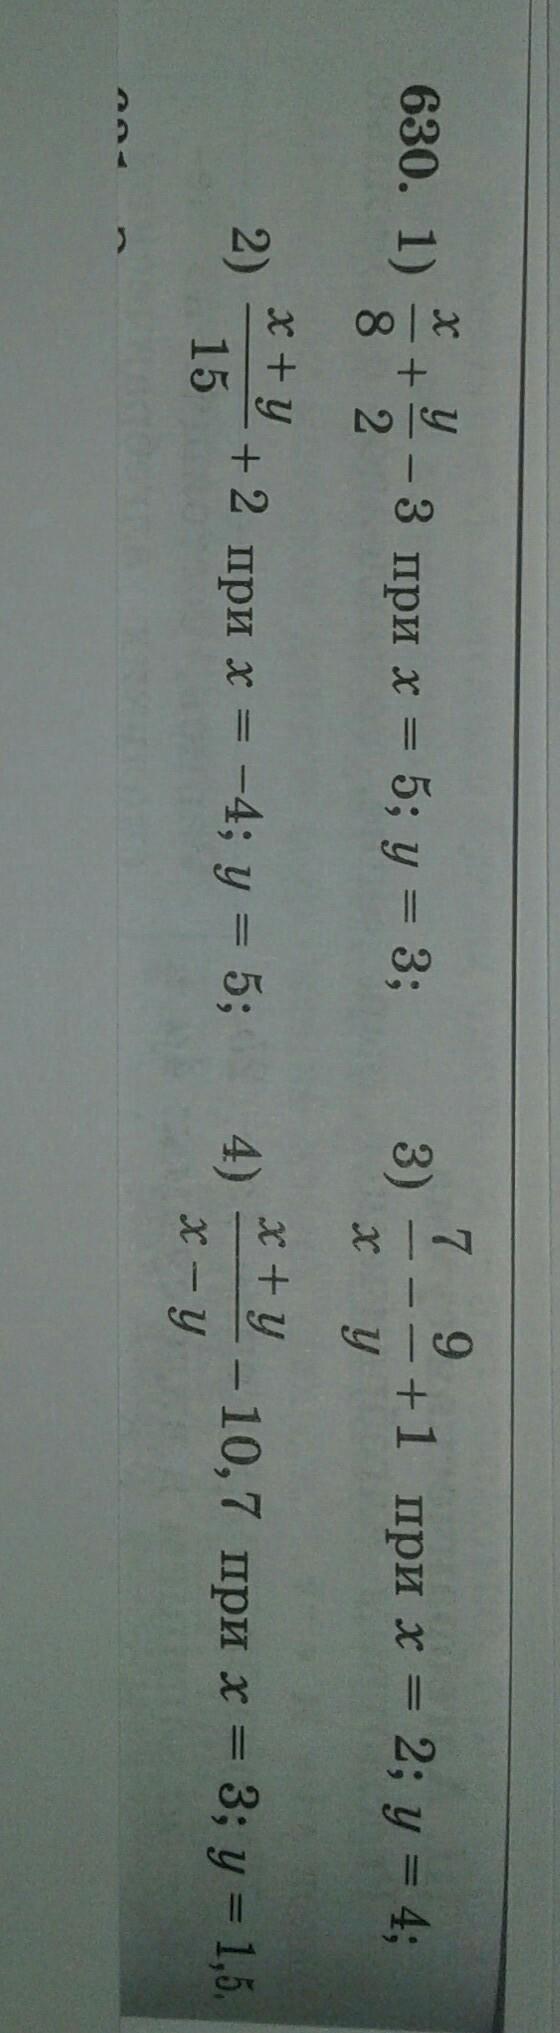 630. 1) x/8 + y/2 − 3 при x = 5; y = 3; 3) 7/x − 9/y + 1 при x = 2; y = 4;
2) (x + y)/15 + 2 при x = −4; y = 5; 4) (x + y)/(x − y) − 10,7 при x = 3; y = 1,5.